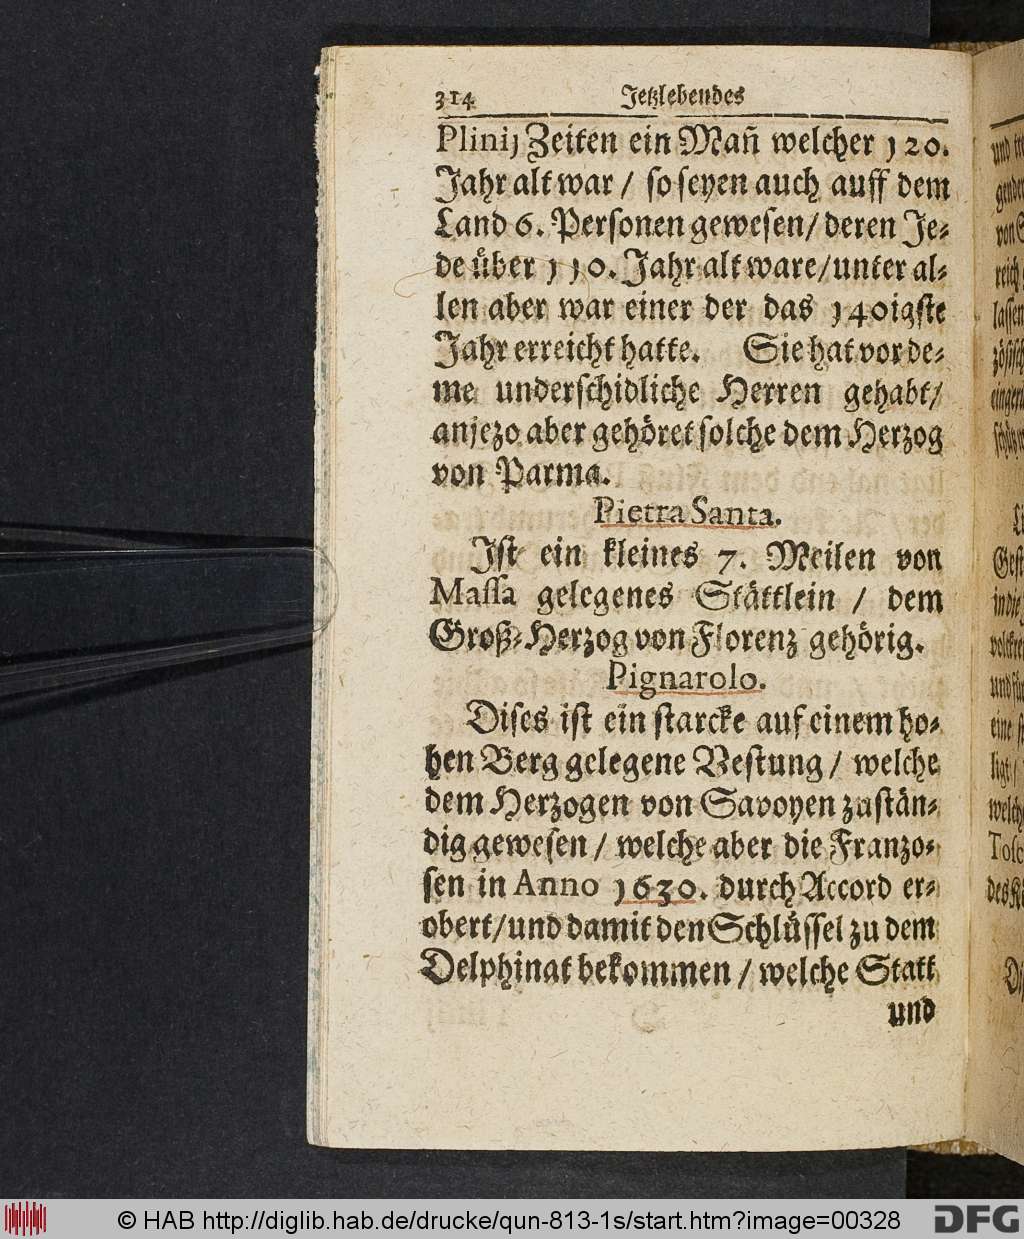 314 Jetzlebendes
Plinij Zeiten ein Mañ welcher 120.
Jahr alt war / so seyen auch auff dem
Land 6. Personen gewesen / deren Je-
de über 110. Jahr alt ware / unter al-
len aber war einer der das 140igste
Jahr erreicht hatte. Sie hat vor de-
me underschidliche Herren gehabt /
anjezo aber gehöret solche dem Herzog
von Parma.
Pietra Santa.
Ist ein kleines 7. Meilen von
Massa gelegenes Stättlein / dem
Groß-Herzog von Florenz gehörig.
Pignarolo.
Dises ist ein starcke auf einem ho-
hen Berg gelegene Vestung / welche
dem Herzogen von Savoyen zustän-
dig gewesen / welche aber die Franzo-
sen in Anno 1630. durch Accord er-
obert / und damit den Schlüssel zu dem
Delphinat bekommen / welche Statt
und
© HAB http://diglib.hab.de/drucke/qun-813-1s/start.htm?image=00328
DFG